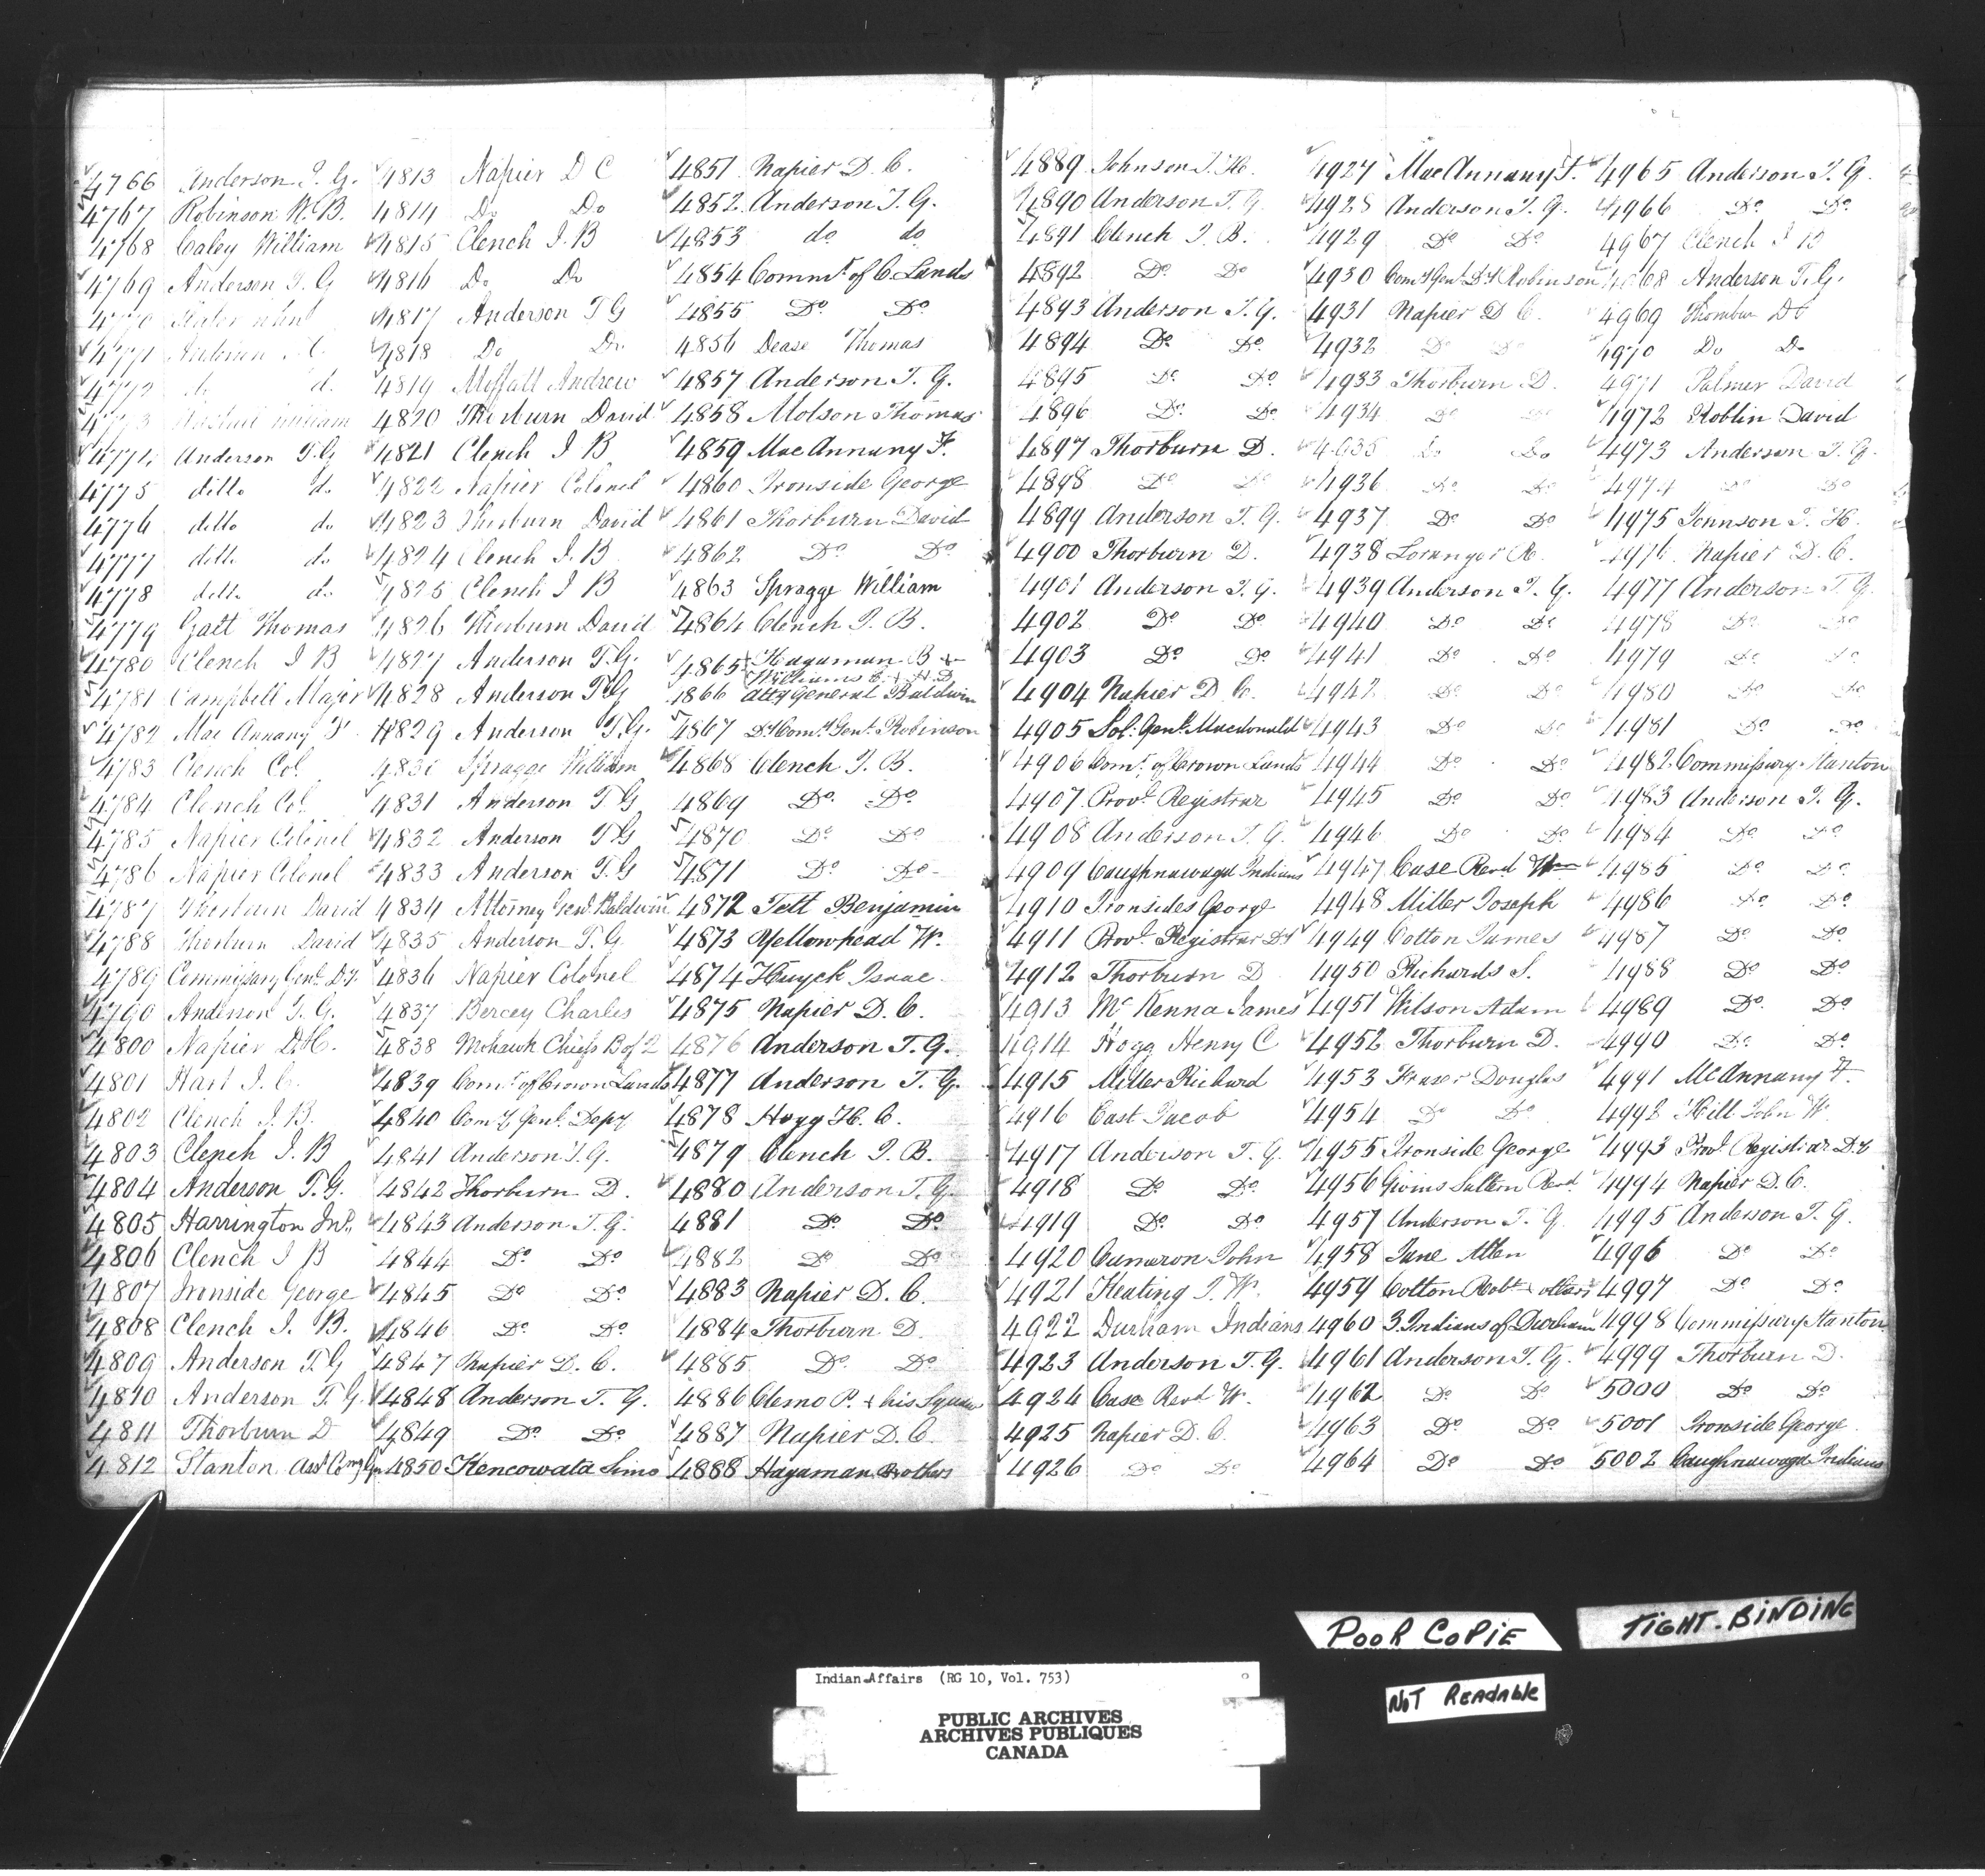 4766 Anderson T. G.
4767 Robinson W. B.
4768 Caley William
4769 Anderson T. G
4770
4771 Anderson
4772 do do
4773 William
4774 Anderson T. G
4775 ditto do
4776 ditto do
4777 ditto do
4778 ditto do
4779 Galt Thomas
4780 Clench J B
4781 Campbell Major
4782 Mac Annany F
4783 Clench Col.
4784 Clench Col.
4785 Napier Colonel
4786 Napier Colonel
4787 Thorburn David
4788 Thorburn David
4789 Commissary Genl. Dy.
4790 Anderson T. G.
4800 Napier D. C.
4801 Hart J.
4802 Clench J. B.
4803 Clench J. B
4804 Anderson T. G.
4805 Harrington Jno.
4806 Clench J B
4807 Ironside George
4808 Clench J. B.
4809 Anderson T. G
4810 Anderson T. G
4811 Thorburn D
4812 Stanton Asst Comy Gen
4813 Napier D C
4814 Do Do
4815 Clench J. B
4816 Do Do
4817 Anderson T G
4818 Do Do
4819 Moffatt Andrew
4820 Thorburn David
4821 Clench J B
4822 Napier Colonel
4823 Thorburn David
4824 Clench J. B
4825 Clench J B
4826 Thorburn David
4827 Anderson T. G.
4828 Anderson T. G
4829 Anderson T. G.
4830 Spragge William
4831 Anderson T. G
4832 Anderson T G
4833 Anderson T. G
4834 Attorney Genl. Baldwin
4835 Anderson T. G
4836 Napier Colonel
4837 Bercey Charles
4838 Mohawk Chiefs B of 2
4839 Comr. of Crown Lands
4840 Comy Genl. Depy
4841 Anderson T. G.
4842 Thorburn D.
4843 Anderson T. G.
4844 Do Do
4845 Do Do
4846 Do Do
4847 Napier D. C.
4848 Anderson T. G.
4849 Do Do
4850 Kencowata Simo
4851 Napier D. C.
4852 Anderson T. G.
4853 do do
4854 Commr. of C. Lands
4855 Do Do
4856 Dease Thomas
4857 Anderson T. G.
4858 Molson Thomas
4859 MacAnnany F.
4860 Ironside George
4861 Thorburn David
4862 Do Do
4863 Spragge William
4864 Clench J. B.
4865 Hagaman B +
Williams E. + A. D
1866 Atty General Baldwin
4867 Dy Comy Genl. Robinson
4868 Clench J. B.
4869 Do. Do
4870 Do Do
4871 Do Do
4872 Tett Benjamin
4873 Yellowhead W.
4874 Huyck Isaac
4875 Napier D. C.
4876 Anderson T. G.
4877 Anderson T. G.
4878 Hogg H. C.
4879 Clench J. B.
4880 Anderson T. G.
4881 Do. Do
4882 Do Do
4883 Napier D. C.
4884 Thorburn D.
4885 Do. Do
4886 Clemo P. + his Squaw
4887 Napier D. C.
4888 Hagaman Brothers
4889 Johnson J. H.
4890 Anderson T. G
4891 Clench J. B.
4892 Do Do
4893 Anderson T. G.
4894 Do Do.
4895 Do Do
4896 Do. Do
4897 Thorburn D.
4898 Do Do
4899 Anderson T. G.
4900 Thorburn D.
4901 Anderson T. G.
4902 Do Do
4903 Do Do
4904 Napier D. C.
4905 Sol. Genl. Macdonald
4906 Comr. of Crown Lands
4907 Provl. Registrar
4908 Anderson T. G.
4909 Caughnawaga Indians
4910 Ironsides George
4911 Provl. Registrar Dy
4912 Thorburn D
4913 Mc Kenna James
4914 Hogg Henry C
4915 Miller Richard
4916 East Jacob
4917 Anderson T. G.
4918 Do Do
4919 Do. Do
4920 Cameron John
4921 Keating J. W.
4922 Durham Indians
4923 Anderson T. G.
4924 Case Revd W.
4925 Napier D. C.
4926 Do Do
4927 MacAnnany F.
4928 Anderson T. G.
4929 Do Do
4930 Comy Genl. Dy Robinson
4931 Napier D. C.
4932 Do Do
4933 Thorburn D.
4934 Do Do
4935 Do Do
4936 Do Do
4937 Do Do
4938 Loranger R.
4939 Anderson T. G.
4940 Do Do
4941 Do Do
4942 Do Do
4943 Do Do
4944 Do Do
4945 Do Do
4946 Do Do
4947 Case Revd Wm
4948 Miller Joseph
4949 Cotton James
4950 Richards S.
4951 Wilson Adam
4952 Thorburn D.
4953 Fraser Douglas
4954 Do Do
4955 Ironside George
4956 Givins Saltern Revd.
4957 Anderson T. G
4958 June Allen
4959 Cotton Robt + others
4960 3. Indians of Durham
4961 Anderson T. G.
4962 Do Do
4963 Do Do
4964 Do Do
4965 Anderson T. G.
4966 Do Do
4967 Clench J B
4968 Anderson T. G.
4969 Thorburn Dd
4970 Do Do
4971 Palmer David
4972 Roblin David
4973 Anderson T. G.
4974 Do Do
4975 Johnson J. H.
4976 Napier D. C.
4977 Anderson T. G.
4978 Do Do
4979 Do Do
4980 Do Do
4981 Do Do
4982 Commissary Stanton
4983 Anderson T. G.
4984 Do Do
4985 Do Do
4986 Do Do
4987 Do Do
4988 Do Do
4989 Do. Do
4990 Do Do
4991 McAnnany F.
4992 Hill John W.
4993 Provl. Registrar Dy
4994 Napier D. C.
4995 Anderson T. G.
4996 Do Do
4997 Do Do
4998 Commissary Stanton
4999 Thorburn D.
5000 Do Do
5001 Ironside George
5002 Caughnawaga Indians
POOR COPIE
TIGHT-BINDING
NOT READABLE
Indian Affairs (RG 10, Vol. 753)
PUBLIC ARCHIVES
ARCHIVES PUBLIQUES
CANADA